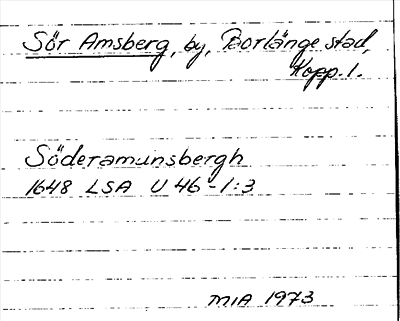 Sör Amsberg, by, Borlänge stad,
Kopp. l.
Söderamunsbergh
1648 LSA U 46 - 1:3
MIA 1973